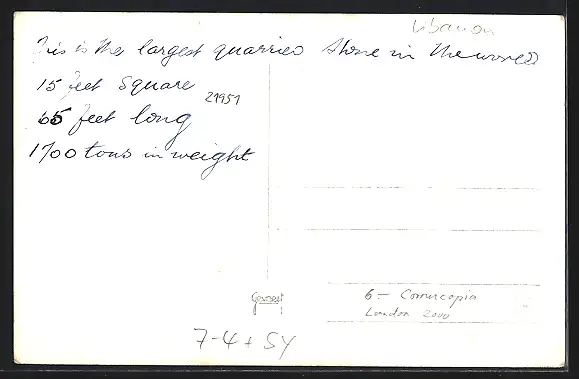 Libanon
This is the largest quarried stone in the world
15 feet square
21951
65 feet long
1700 tons in weight
Gevaert
6 - Cornucopia
London 2000
7-4 + SY